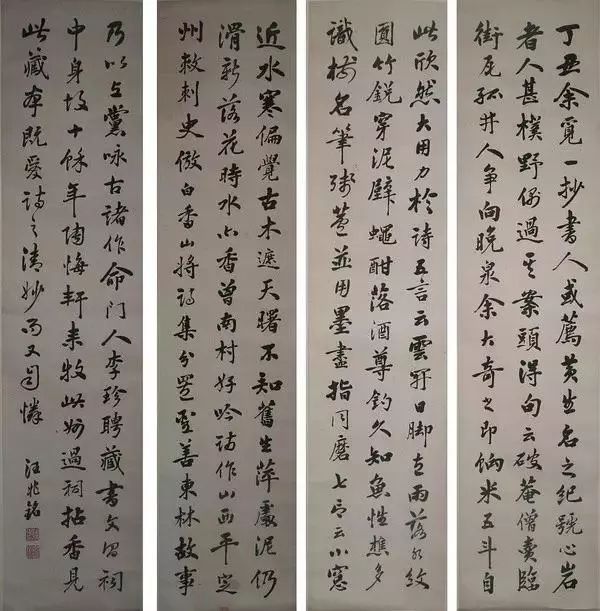 丁丑余覓一抄書人或薦黃生名之紀號心岩
者人甚樸野偶過其案頭得句云破菴僧賣臨
街瓦孤井人爭向晚泉余大奇之即餉米五斗自
此欣然大用力於詩五言云雲開日脚直雨落水紋
圓竹銳穿泥壁蠅酣落酒尊釣久知魚性樵多
識樹名筆殘蘆並用墨盡指同磨七言云小窓
近水寒偏覺古木遮天曙不知舊生萍處泥仍
滑新落花時水亦香曾南村好吟詩作山西平定
州敕刺史倣白香山將詩集分置聖善東林故事
乃以上黨咏古諸作命門人李珍聘藏書文昌祠
中身故十餘年陶悔軒来牧此州過祠拈香見
此藏本既愛詩之清妙而又自憐
汪兆銘